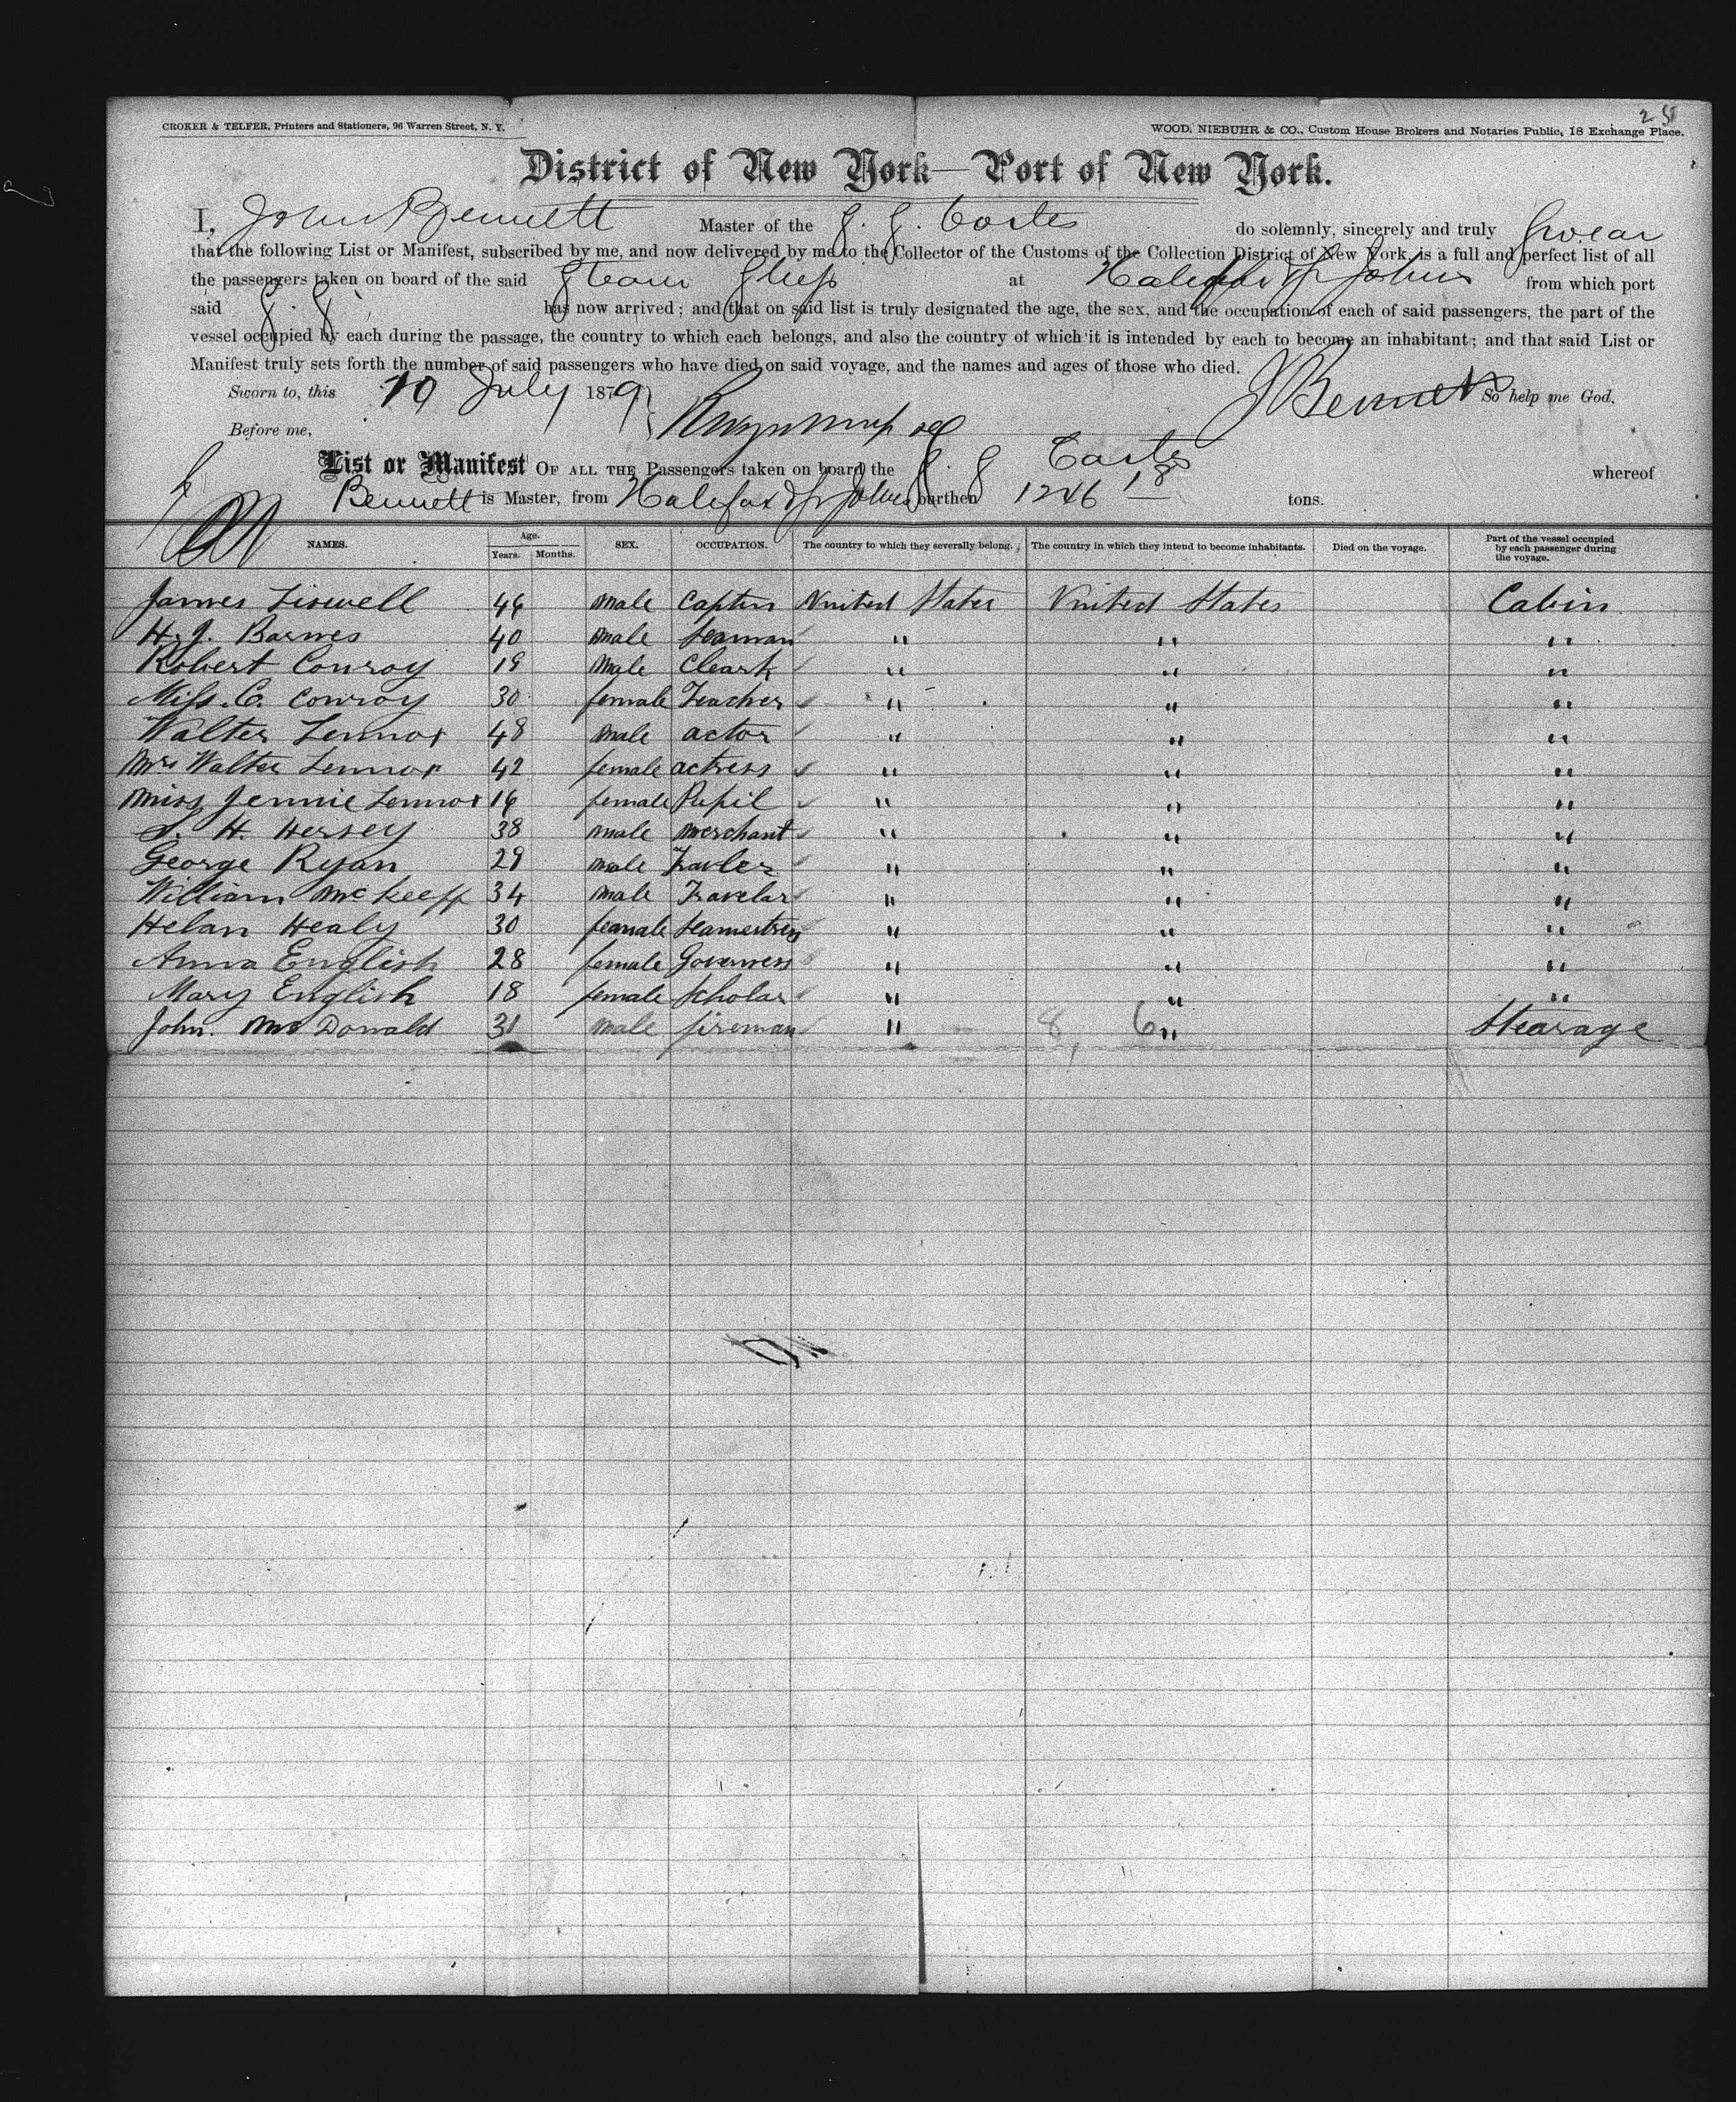 CROKER & TELFER, Printers and Stationers, 96 Warren Street, N. Y.
WOOD, NIEBUHR & CO., Custom House Brokers and Notaries Public, 18 Exchange Place.
District of New York—Port of New York.
I, John Bennett Master of the S. S. Cortes do solemnly, sincerely and truly Swear
that the following List or Manifest, subscribed by me, and now delivered by me to the Collector of the Customs of the Collection District of New York, is a full and perfect list of all
the passengers taken on board of the said Steam Ship at Halifax & St Johns from which port
said S. S. has now arrived; and that on said list is truly designated the age, the sex, and the occupation of each of said passengers, the part of the
vessel occupied by each during the passage, the country to which each belongs, and also the country of which it is intended by each to become an inhabitant; and that said List or
Manifest truly sets forth the number of said passengers who have died on said voyage, and the names and ages of those who died.
Sworn to, this 10 July 1879 J Bennett So help me God.
Before me,
List or Manifest OF ALL THE Passengers taken on board the S. S Cortes whereof
Bennett is Master, from Halifax & St Johns burthen 1246 18 tons.
NAMES. Age. Years. Months. SEX. OCCUPATION. The country to which they severally belong. The country in which they intend to become inhabitants. Died on the voyage. Part of the vessel occupied by each passenger during the voyage.
James 46 male Captin United States United States Cabin
H. J. Barnes 40 male seaman " " "
Robert Conroy 19 male Cleark " " "
Miss. C. Conroy 30 female Teacher " " "
Walter Lennox 48 male actor " " "
Mrs Walter Lennox 42 female actress " " "
Miss Jennie Lennox 16 female Pupil " " "
H. Hersey 38 male merchant " " "
George Ryan 29 male Travler " " "
William 34 male Travelar " " "
Helan Healy 30 feamale seamestress " " "
Anna English 28 female Governess " " "
Mary English 18 female scholar " " "
John. McDonald 31 male fireman " " Stearage